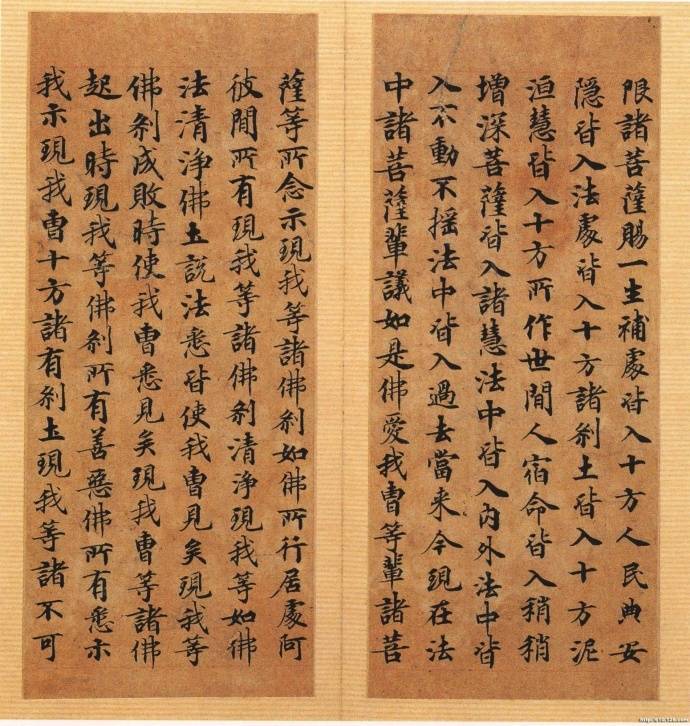 限諸菩薩賜一生補處皆入十方人民典安
隱皆入法處皆入十方諸剎土皆入十方泥
洹慧皆入十方所作世間人宿命皆入稍稍
增深菩薩皆入諸慧法中皆入內外法中皆
入不動不搖法中皆入過去當來今現在法
中諸菩薩輩議如是佛愛我曹等輩諸菩
薩等所念示現我等諸佛剎如佛所行居處阿
彼間所有現我等諸佛剎清淨現我等如佛
法清淨佛土說法悉皆使我曹見矣現我等
佛剎成敗時使我曹悉見矣現我曹等諸佛
起出時現我等佛剎所有善惡佛所有悉示
我示現我曹十方諸有剎土現我等諸不可